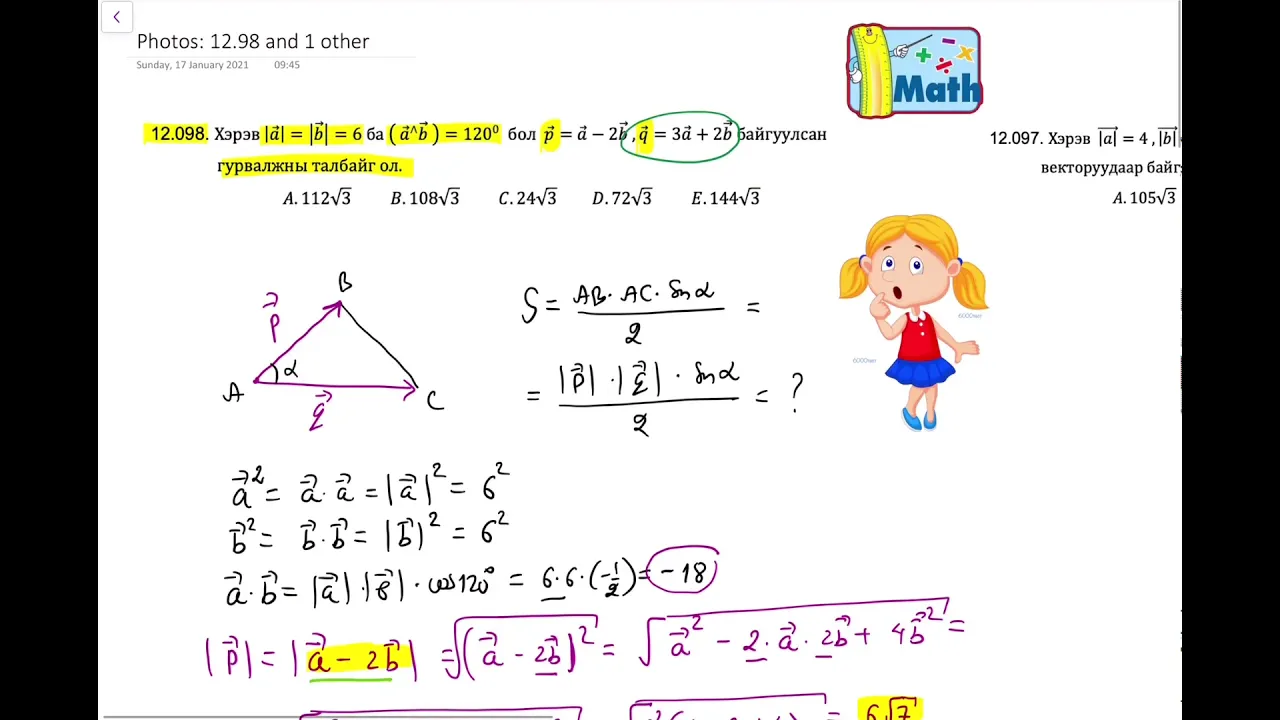 Photos: 12.98 and 1 other
Sunday, 17 January 2021 09:45
Math
12.098. Хэрэв |a⃗| = |b⃗| = 6 ба (a⃗^b⃗) = 120⁰ бол p⃗ = a⃗ − 2b⃗, q⃗ = 3a⃗ + 2b⃗ байгуулсан
гурвалжны талбайг ол.
A. 112√3 B. 108√3 C. 24√3 D. 72√3 E. 144√3
12.097. Хэрэв |a⃗| = 4, |b⃗|
векторуудаар байг
A. 105√3
B
p⃗
α
A
q⃗
C
S = AB · AC · Sin α / 2 =
= |p⃗| · |q⃗| · Sin α / 2 = ?
a⃗² = a⃗ · a⃗ = |a⃗|² = 6²
b⃗² = b⃗ · b⃗ = |b⃗|² = 6²
a⃗ · b⃗ = |a⃗| · |b⃗| · cos 120° = 6 · 6 · (−1/2) = −18
|p⃗| = |a⃗ − 2b⃗| = √(a⃗ − 2b⃗)² = √a⃗² − 2 · a⃗ · 2b⃗ + 4b⃗² =
= 6√7